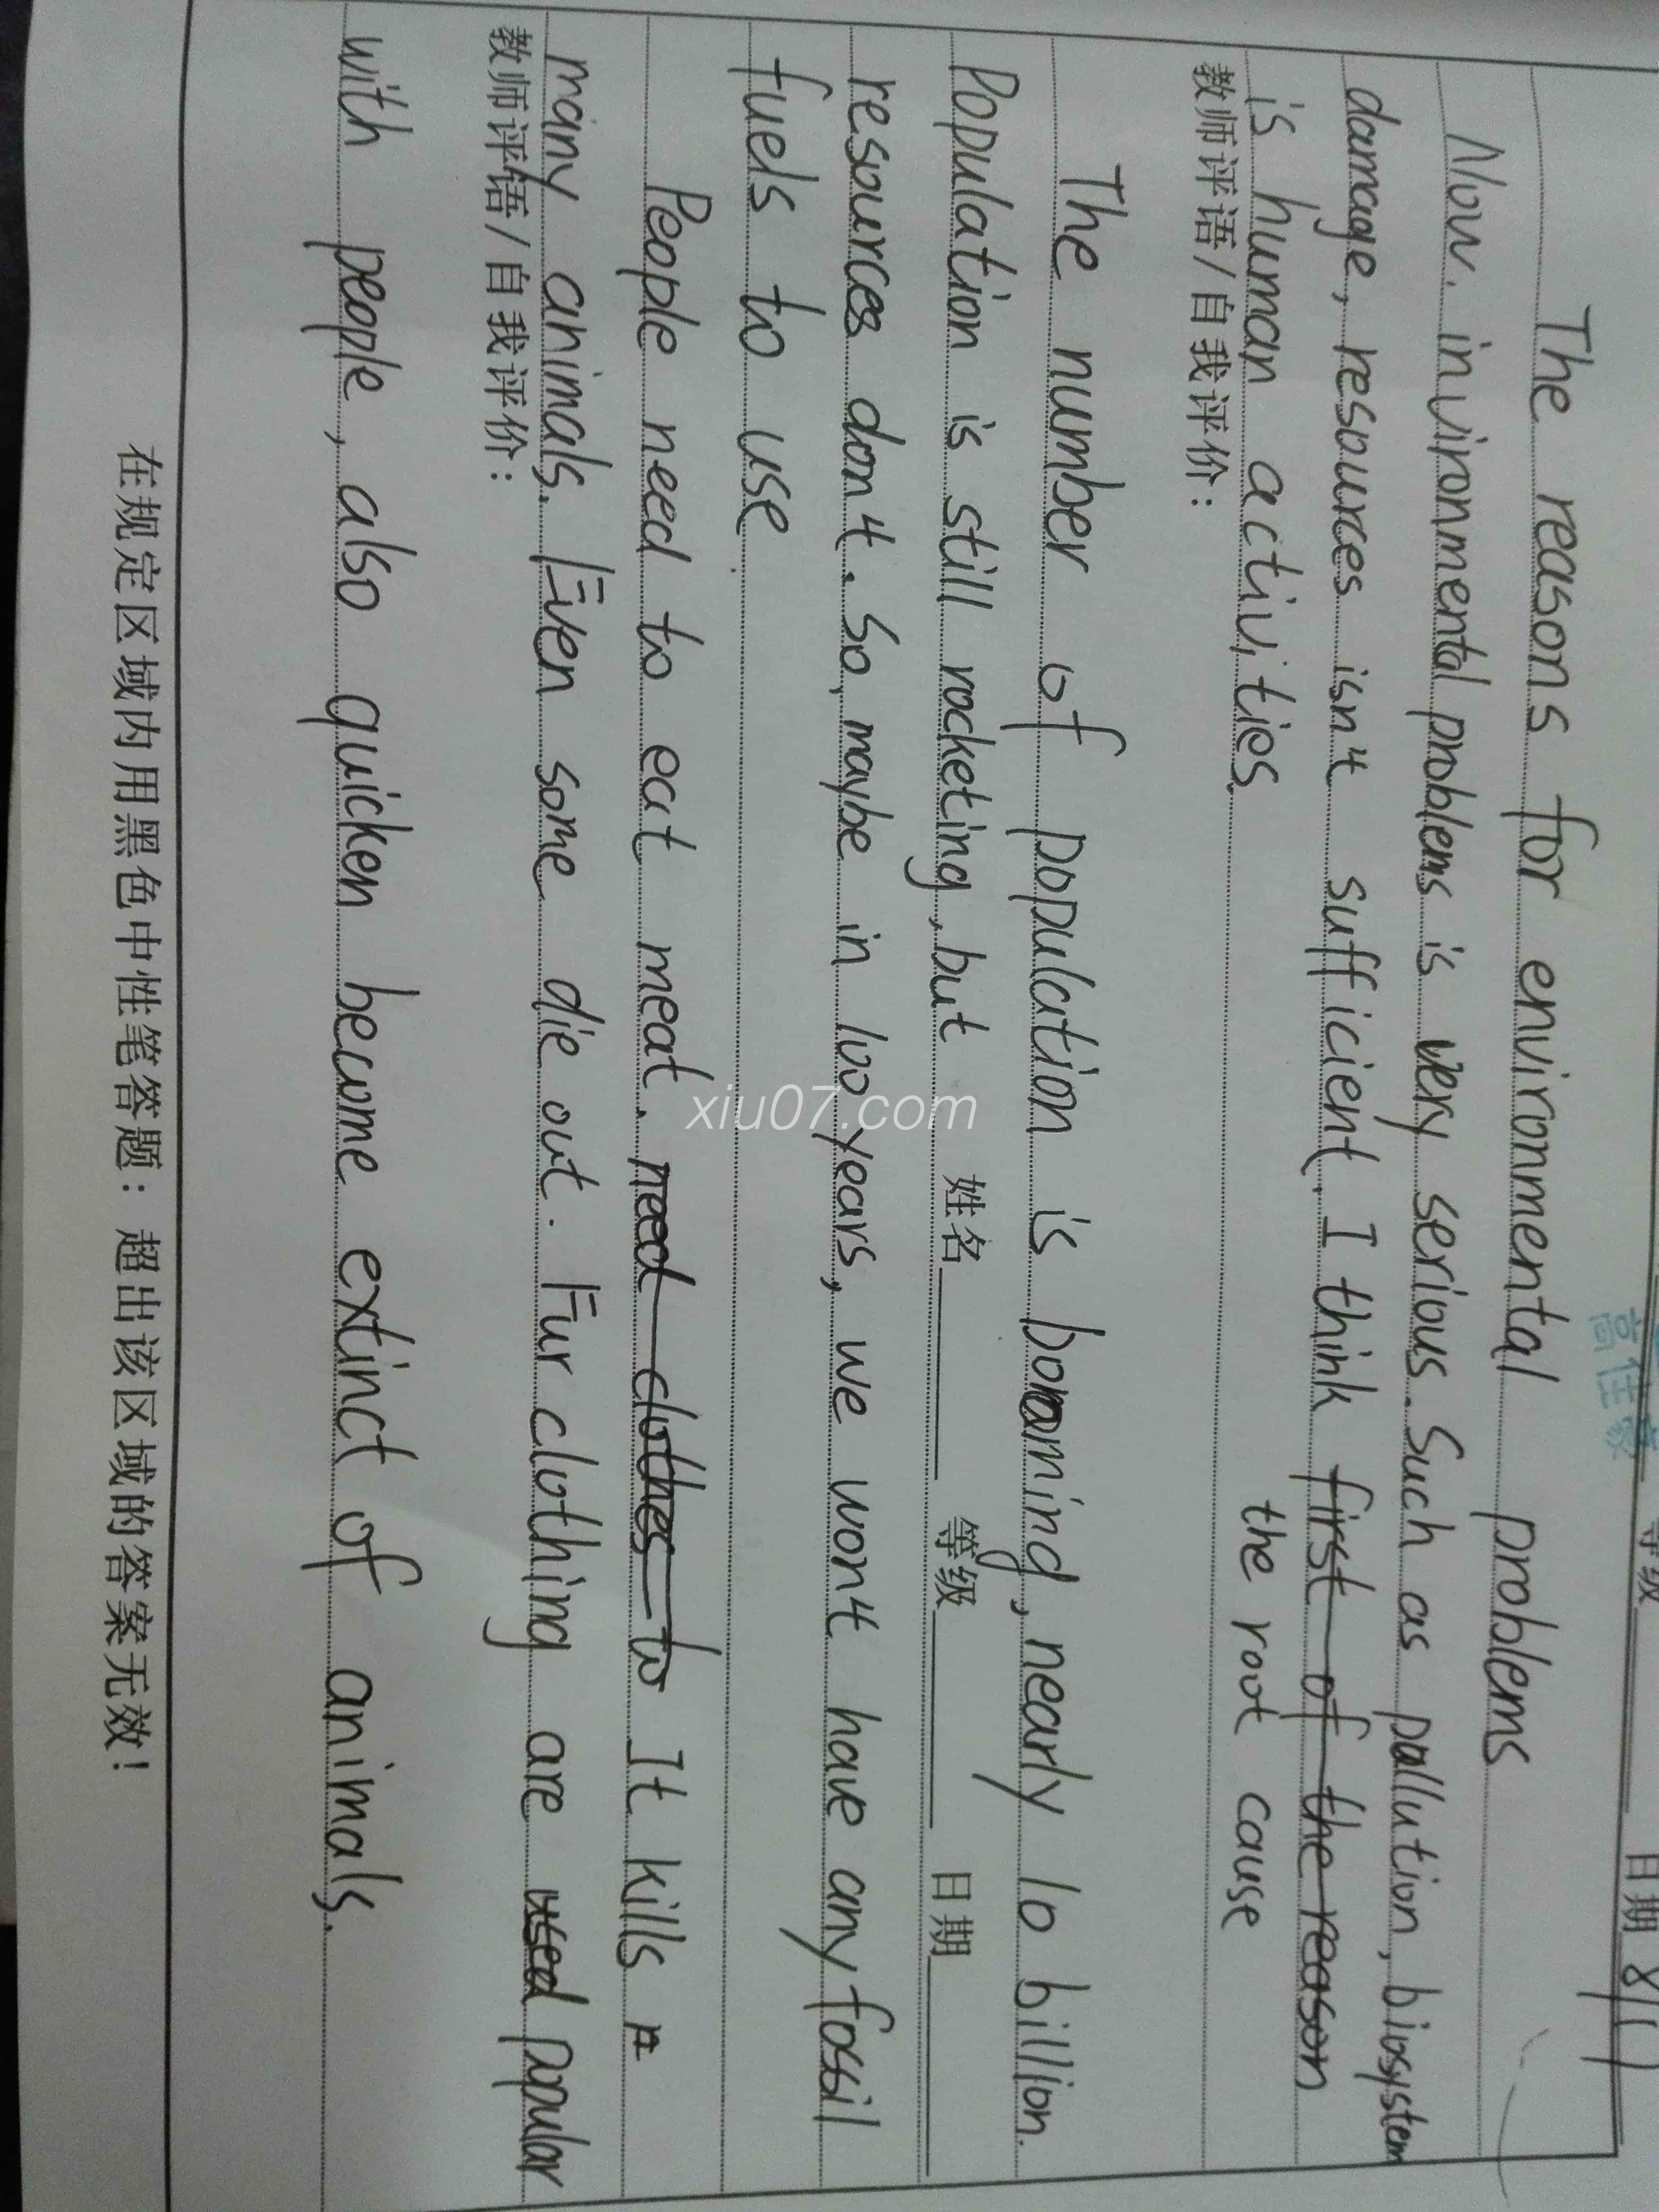 等级 日期 8/10
The reasons for environmental problems
Now. invironmental problems is very serious. Such as pollution, biosystem
damage, resources isn't sufficient. I think first of the reason
the root cause
is human activities
教师评语/自我评价:
The number of population is booming, nearly 10 billion.
Population is still rocketing, but 姓名 等级 日期
resources don't. So, maybe in 100 years, we won't have any fossil
fuels to use
People need to eat meat. need clothes to It kills
many animals. Even some die out. Fur clothing are used popular
教师评语/自我评价:
with people, also quicken become extinct of animals.
在规定区域内用黑色中性笔答题: 超出该区域的答案无效!
xiu07.com